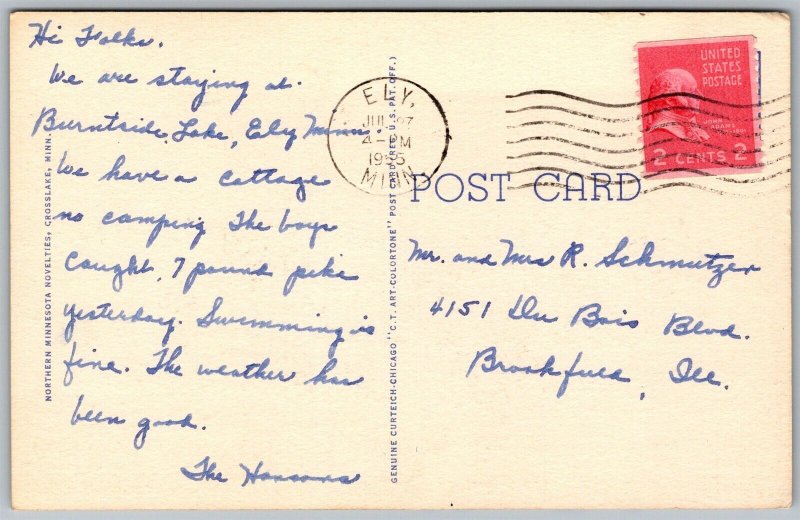 Hi Folks.
We are staying at
Burntside Lake, Ely Minn.
We have a cottage
no camping The boys
caught 7 pound pike
yesterday. Swimming is
fine. The weather has
been good.
The Hansons
NORTHERN MINNESOTA NOVELTIES, CROSSLAKE, MINN.
GENUINE CURTEICH-CHICAGO "C.T. ART-COLORTONE" POST CARD (REG. U.S. PAT. OFF.)
ELY,
JUL 27
4-PM
1955
MINN
UNITED
STATES
POSTAGE
JOHN
ADAMS
2 CENTS 2
POST CARD
Mr. and Mrs R. Schmutzer
4151 Du Bois Blvd.
Brookfield, Ill.